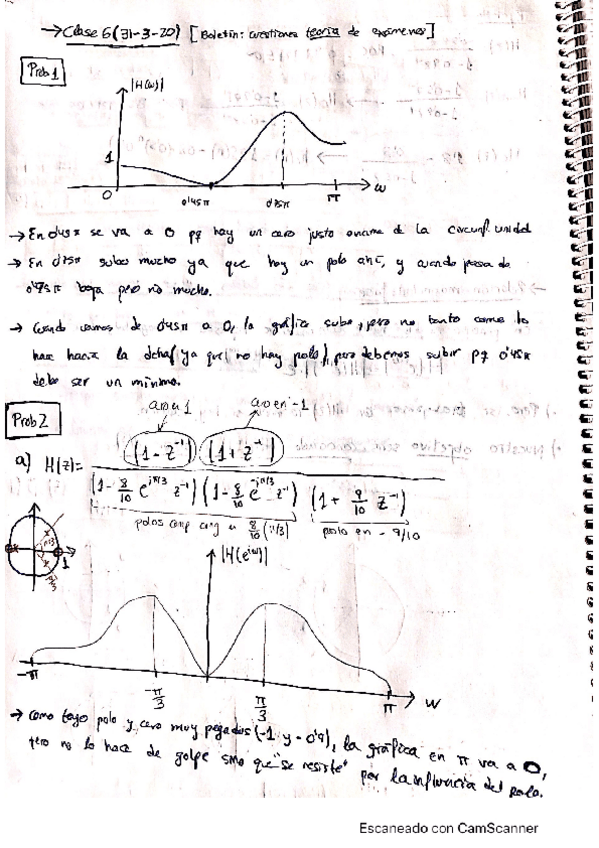 → Clase 6 (31-3-20) [Boletín: cuestiones teoría de exámenes]
Prob 1
|H(ω)|
1
0
0'45π
0'75π
π
ω
→ En 0'45π se va a 0 pq hay un cero justo encima de la circunf. unidad
→ En 0'75π sube mucho ya que hay un polo ahí, y cuando pasa de
0'75π baja pero no mucho.
→ Cuando vamos de 0'45π a 0, la gráfica sube, pero no tanto como lo
hace hacia la dcha (ya que no hay polo), pero debemos subir pq 0'45π
debe ser un mínimo.
Prob 2
cero en -1
a) H(z) = (1 - z⁻¹) (1 + z⁻¹)
(1 - 8/10 e^{jπ/3} z⁻¹) (1 - 8/10 e^{-jπ/3} z⁻¹) (1 + 9/10 z⁻¹)
polos comp conj en 8/10 (π/3)
polo en - 9/10
π/3
1
|H(e^{jω})|
-π
-π/3
π/3
π
ω
→ Como tengo polo y cero muy pegados (-1 y -0'9), la gráfica en π va a 0,
pero no lo hace de golpe sino que "se resiste" por la influencia del polo.
Escaneado con CamScanner